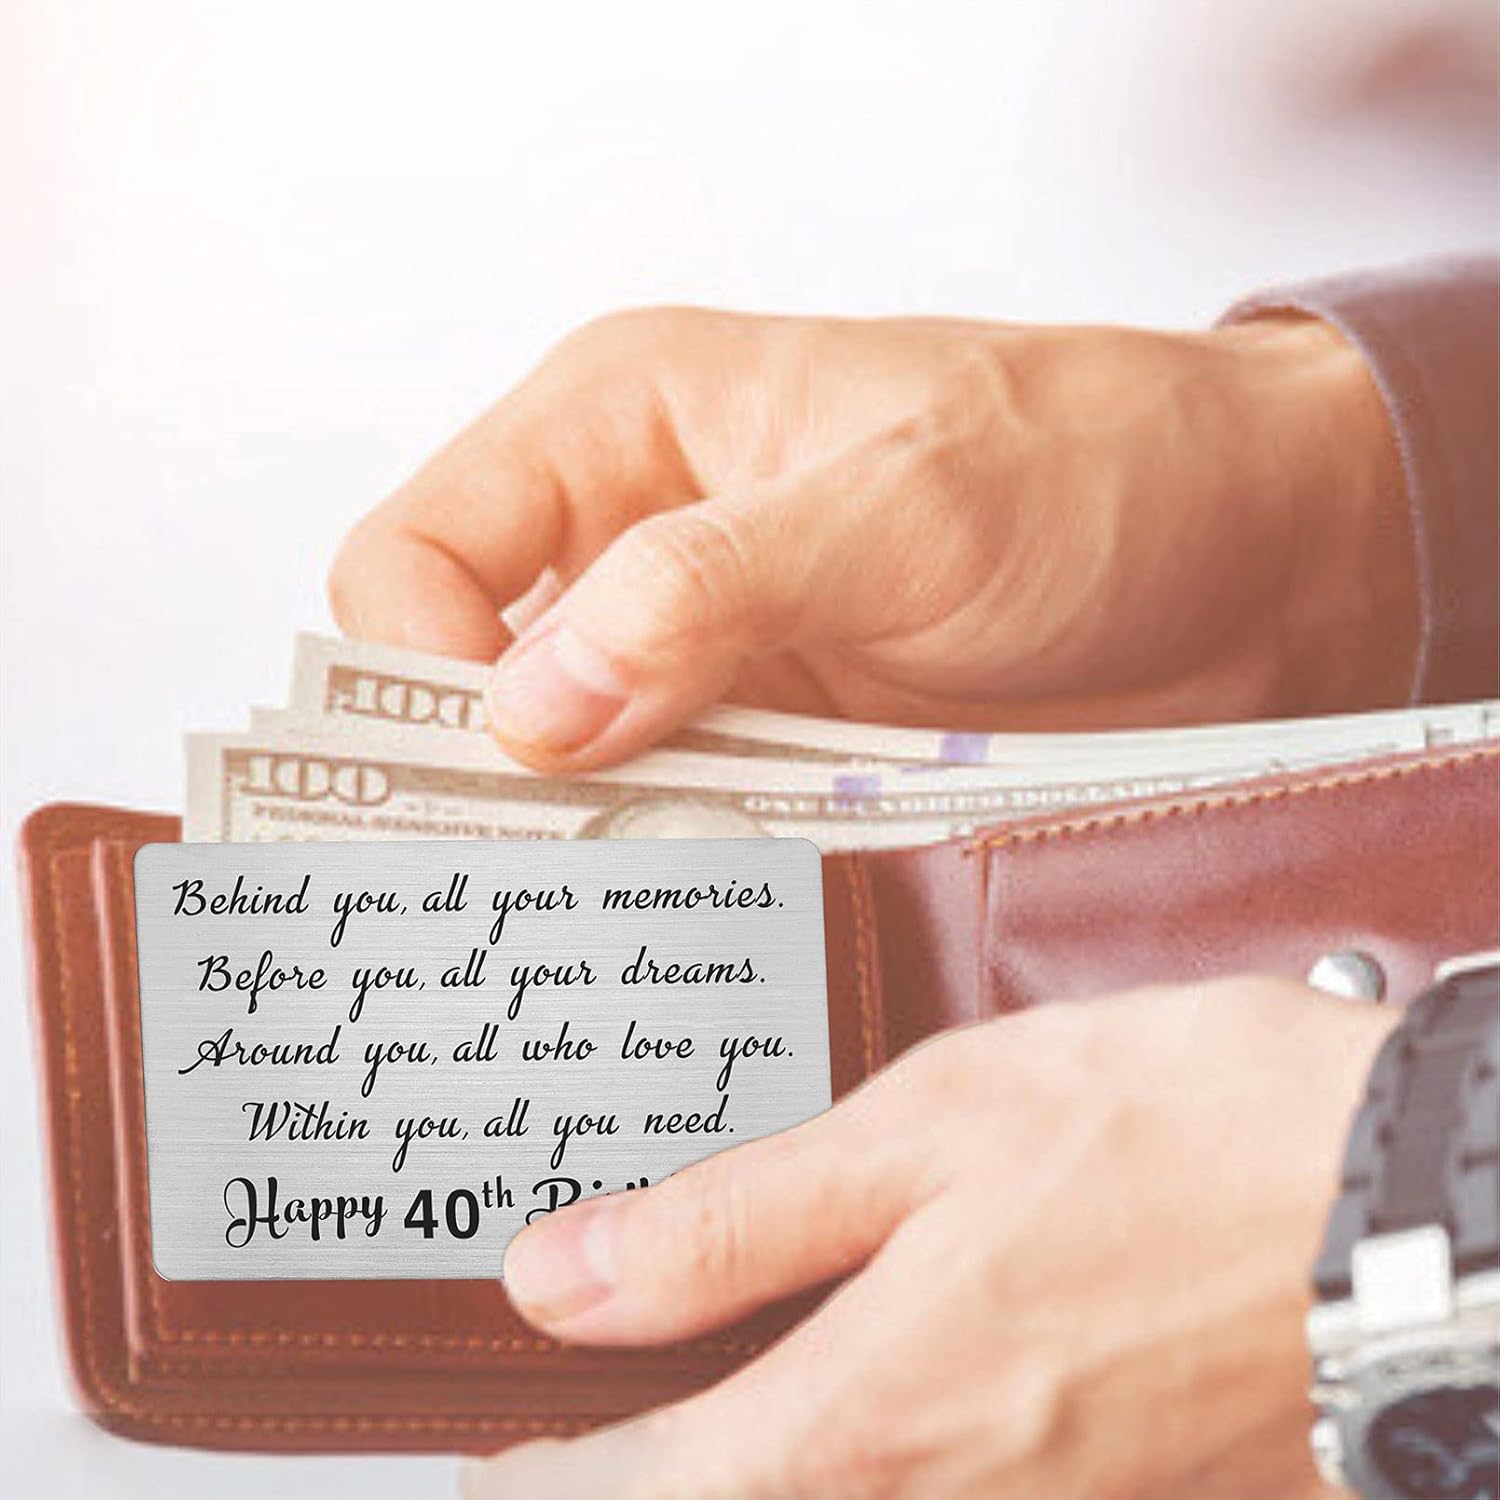 100
100
FEDERAL RESERVE NOTE
ONE HUNDRED DOLLARS
Behind you, all your memories.
Before you, all your dreams.
Around you, all who love you.
Within you, all you need.
Happy 40th